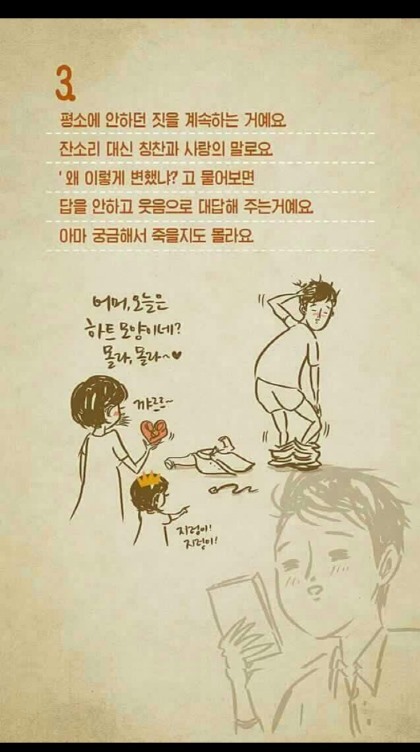 3.
평소에 안하던 짓을 계속하는 거예요.
잔소리 대신 칭찬과 사랑의 말로요.
' 왜 이렇게 변했냐? 고 물어보면
답을 안하고 웃음으로 대답해 주는거예요.
아마 궁금해서 죽을지도 몰라요.
어머, 오늘은
하트모양이네?
몰라, 몰라~♥
꺄르르~
지렁이!
지렁이!